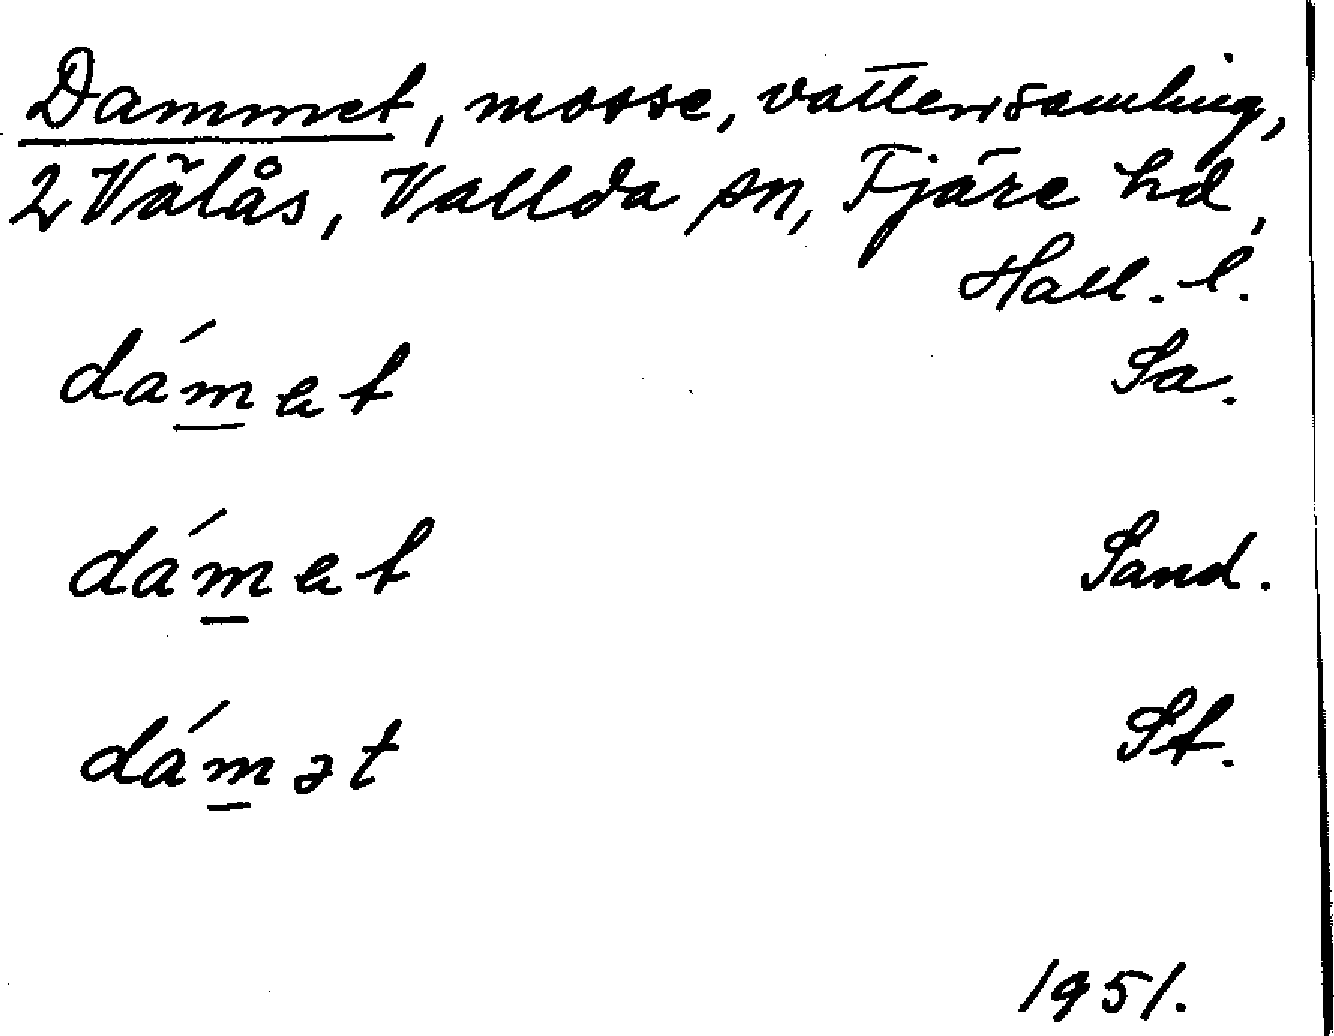 Dammet, mosse, vattensamling,
2 Välås, Vallda sn, Fjäre hd,
Hall. l.
dám̲et Sa.
dám̲et Sand.
dám̲ət St.
1951.